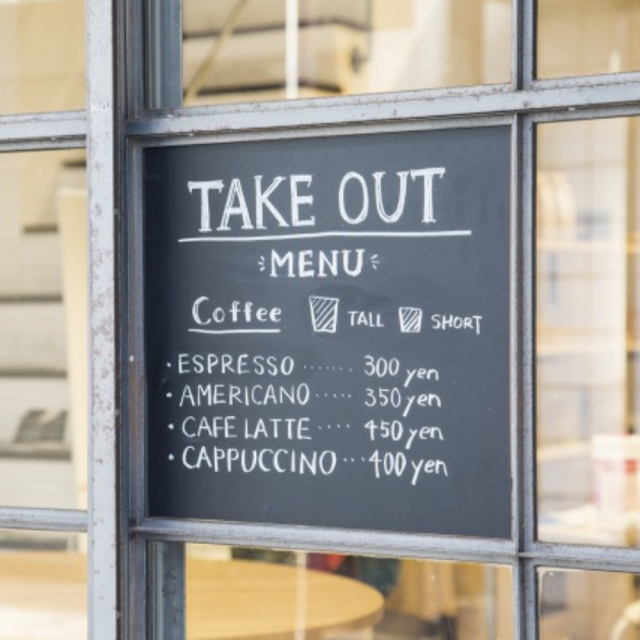 TAKE OUT
MENU
Coffee TALL SHORT
· ESPRESSO ······· 300 yen
· AMERICANO ····· 350 yen
· CAFE LATTE ···· 450 yen
· CAPPUCCINO ··· 400 yen